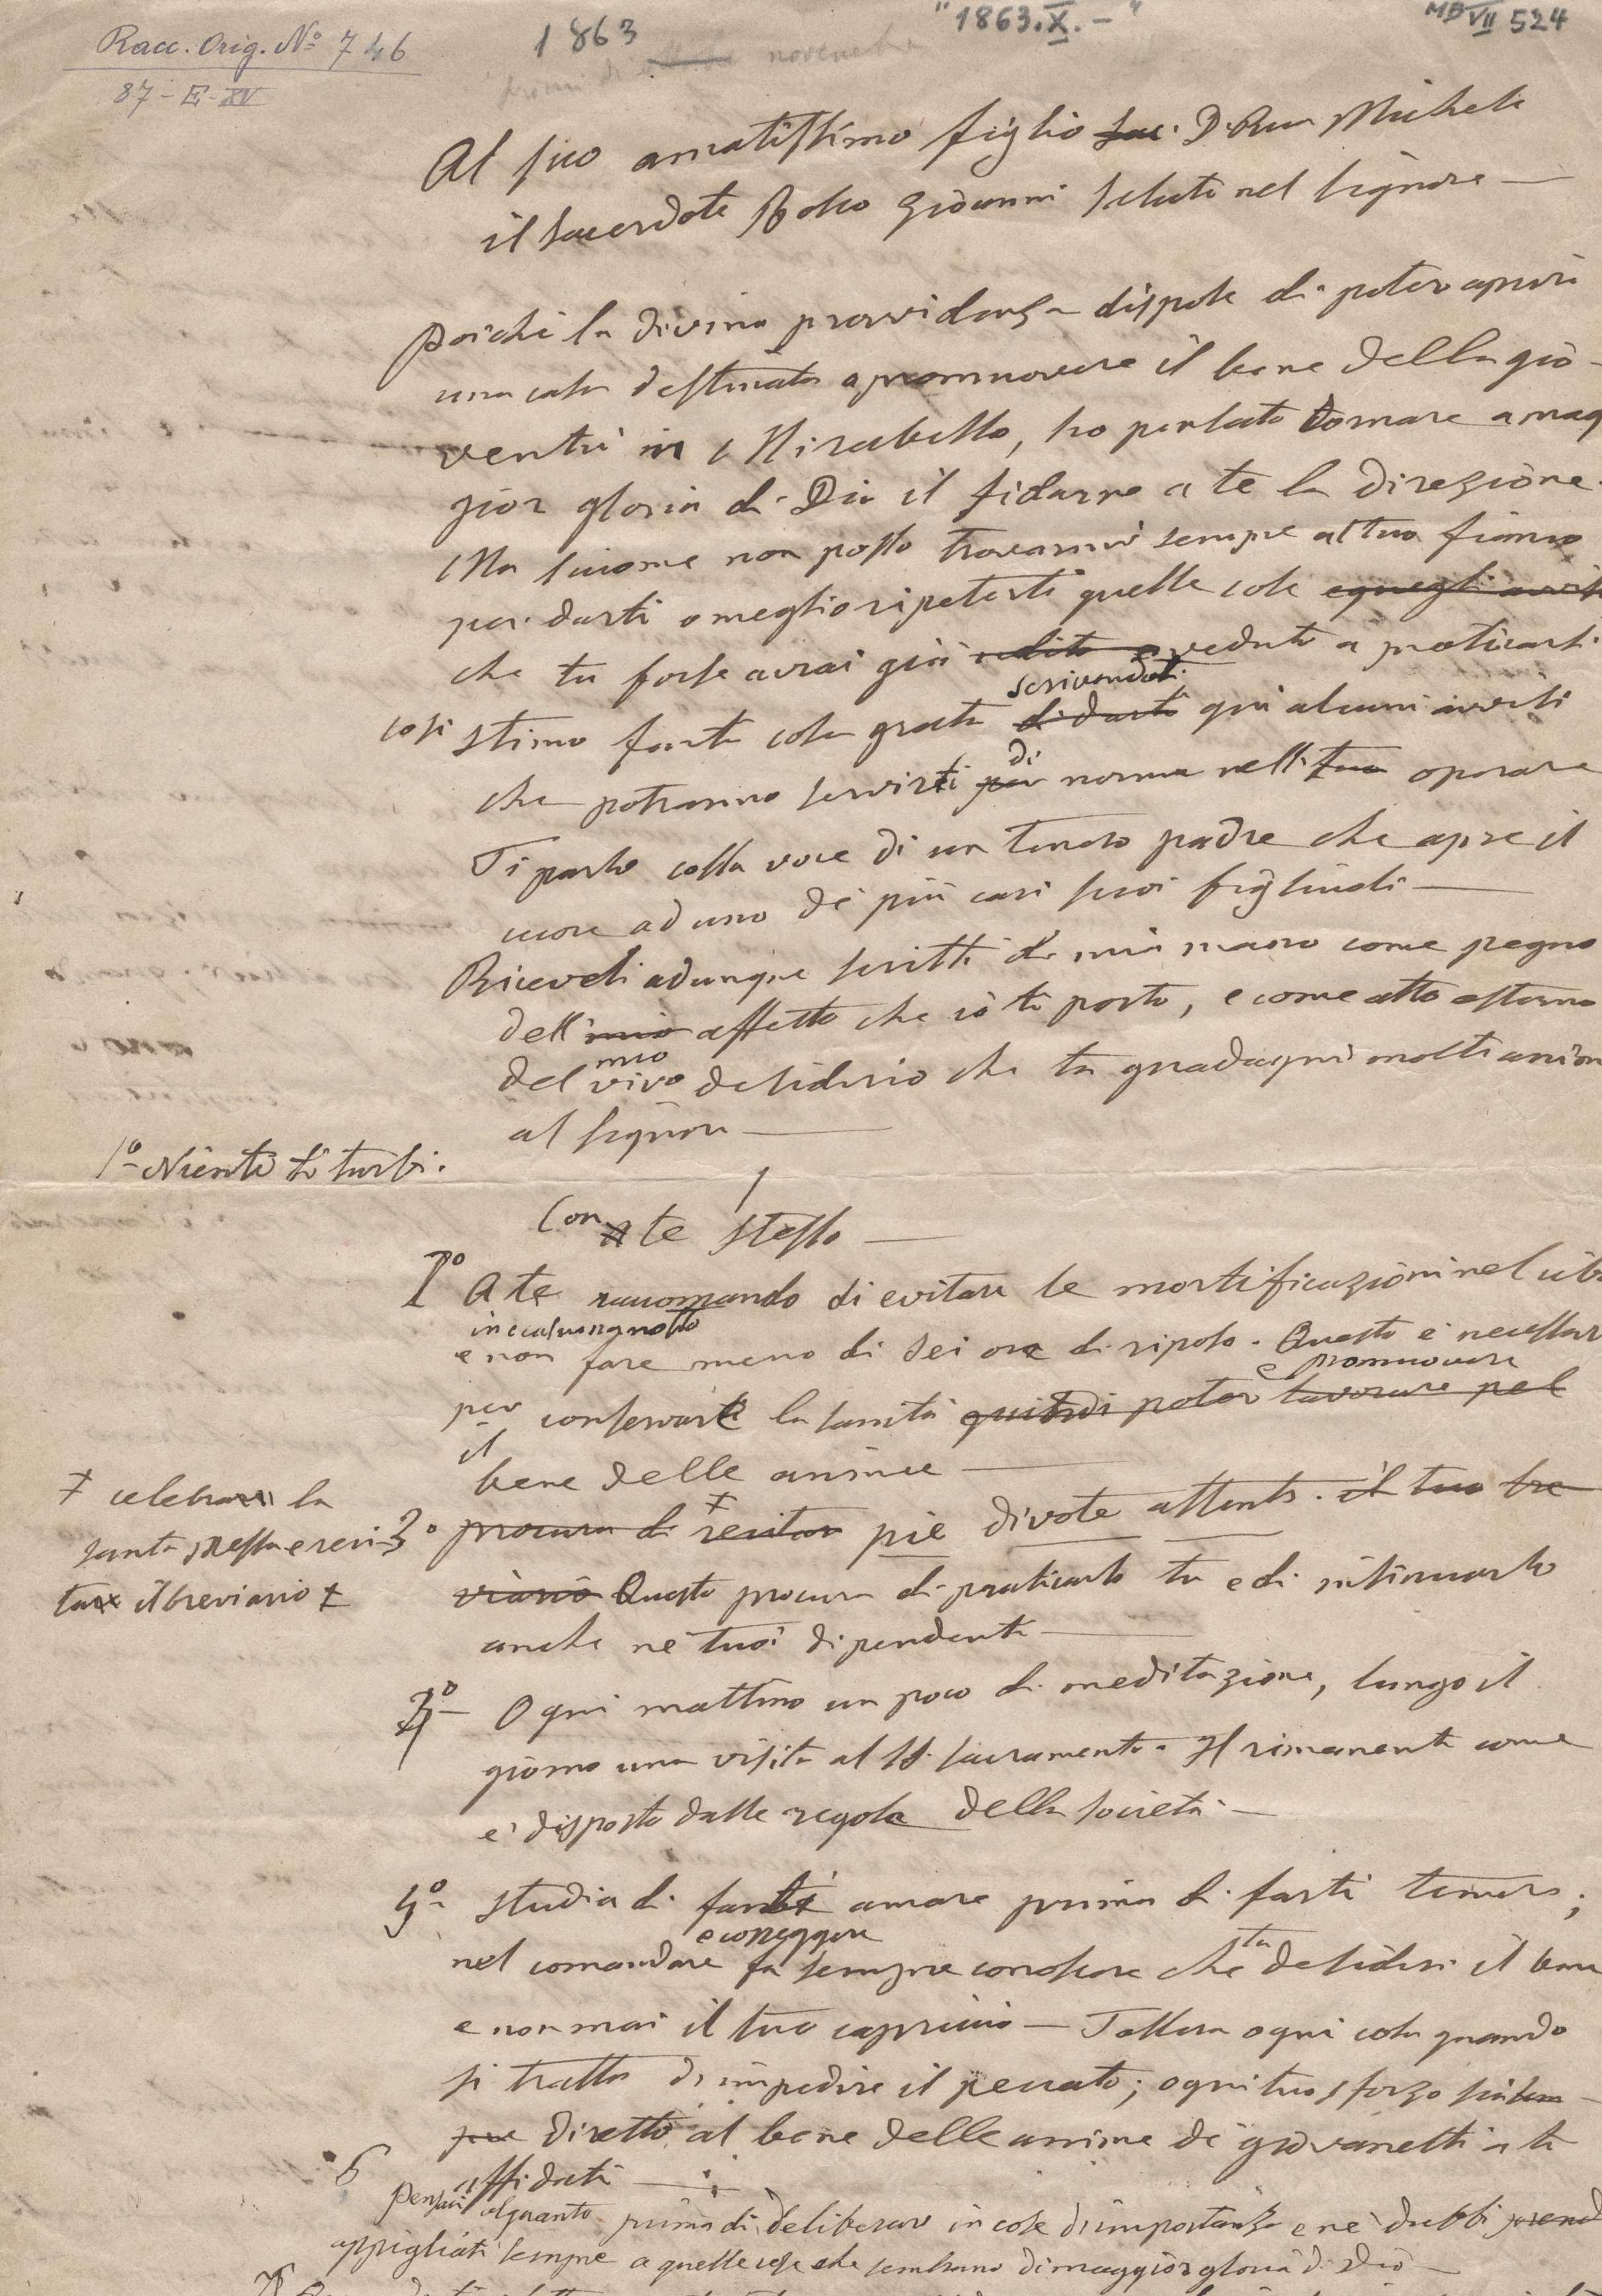 Racc. Orig. Nº 746
87-E-XV
1863
"1863.X.-"
MB VII 524
novembre
Al suo amatissimo figlio Sac. D. Rua Michele
il Sacerdote Bosco Giovanni salute nel Signore —
Poichè la divina provvidenza dispose di poter aprire
una casa destinata a promuovere il bene della gio-
ventù in Mirabello, ho pensato tornare a mag
gior gloria di Dio il fidarne a te la direzione.
Ma siccome non posso trovarmi sempre al tuo fianco
per darti o meglio ripeterti quelle cose e quegli avvisi
che tu forse avrai già udito o veduto a praticarsi
scrivendoti
così stimo farti cosa grata di darti qui alcuni avvisi
di
che potranno servirti per norma nell' tuo operare
Ti parlo colla voce di un tenero padre che apre il
cuore ad uno de' più cari suoi figliuoli —
Ricevili adunque scritti di mia mano come pegno
dell' mio affetto che io ti porto, e come atto esterno
mio
del vivo desiderio che tu guadagni molte anime
al Signore —
1º Niente ti turbi.
1
Con te stesso —
1º A te raccomando di evitare le mortificazioni nel cibo
in ciascuna notte
e non fare meno di sei ore di riposo. Questo è necessar
e promuovere
per conservare la sanità quindi poter lavorare pel
il
bene delle anime —
+ celebrare la
santa Messa e reci
tare il breviario +
3º procura di + recitar pie divote attente. il tuo bre
viario Questo procura di praticarlo tu e di insinuarlo
anche ne' tuoi dipendenti —
3º — Ogni mattino un poco di meditazione, lungo il
giorno una visita al SS. Sacramento. Il rimanente come
è disposto dalle regole della Società —
5º Studia di farti amare prima di farti temere;
e correggere
tu
nel comandare fa sempre conoscere che desideri il bene
e non mai il tuo capriccio — Tollera ogni cosa quando
si tratta di impedire il peccato; ogni tuo sforzo sia sem-
pre diretto al bene delle anime de' giovanetti a te
affidati —
6 Pensaci alquanto prima di deliberare in cose d'importanza e ne' dubbi prend
appigliati sempre a quelle cose che sembrano di maggior gloria di Dio —